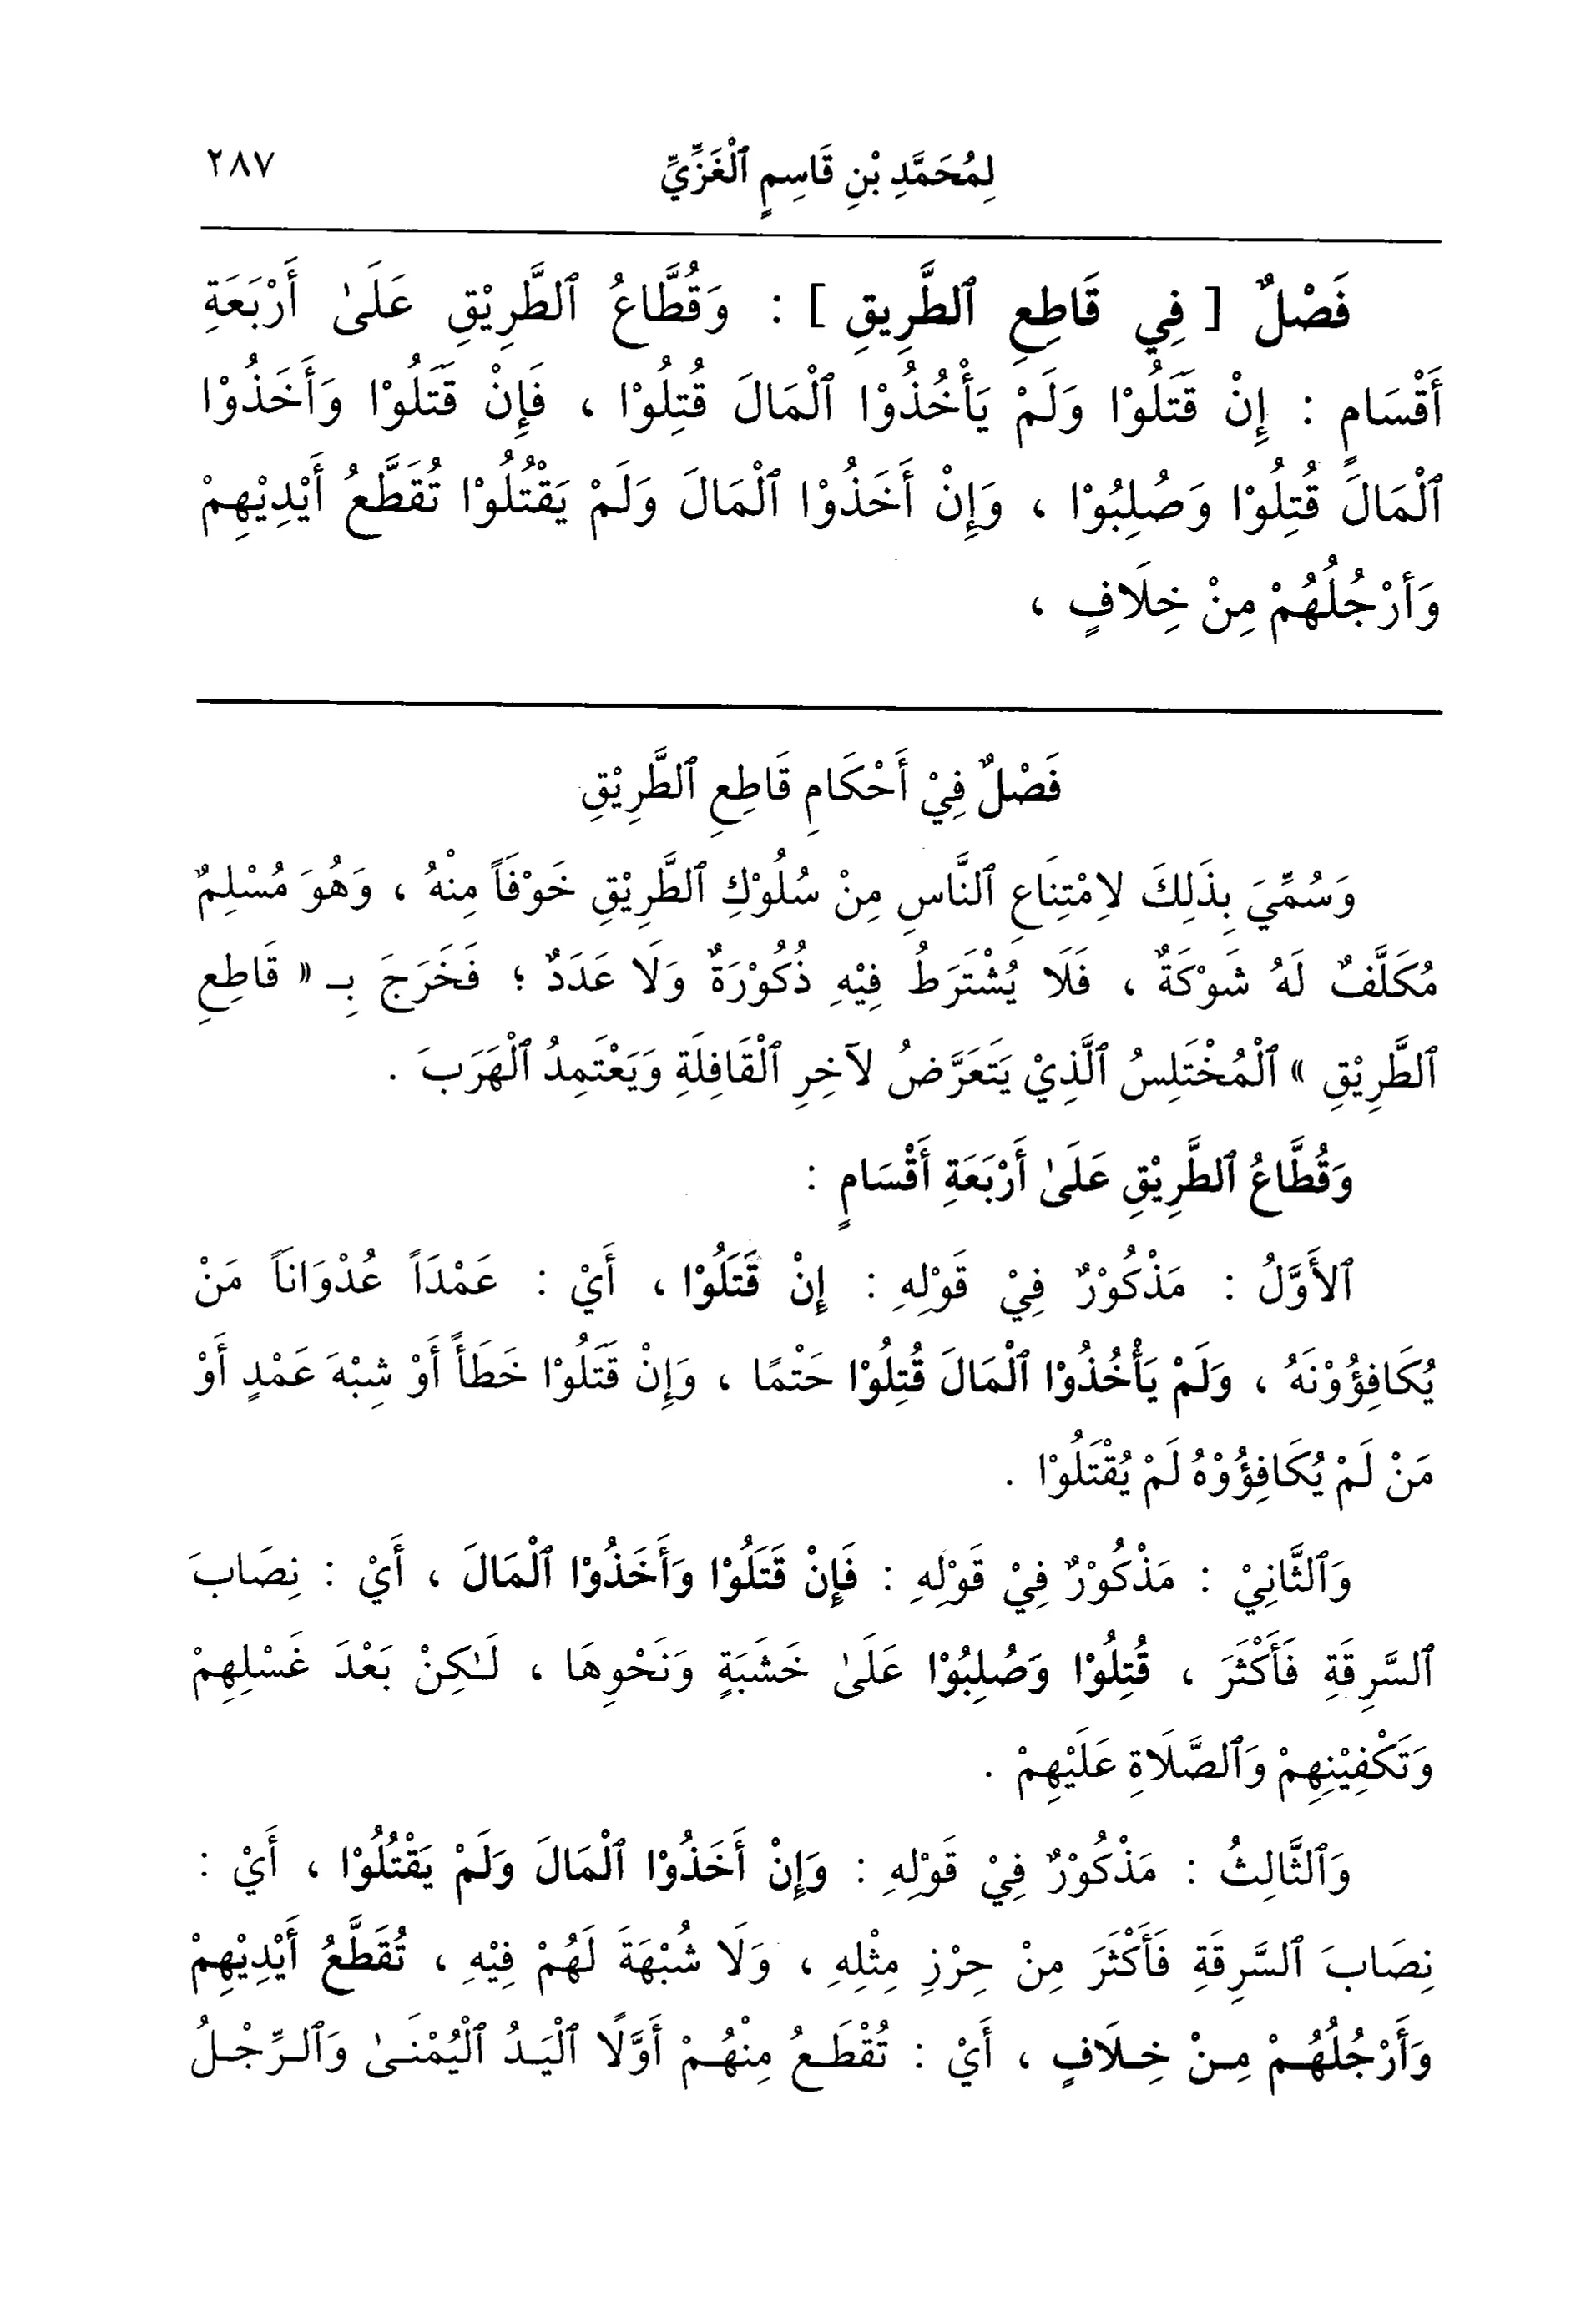 لِمُحَمَّدِ بْنِ قَاسِمٍ ٱلْغَزِّيِّ ٢٨٧
فَصْلٌ [ فِي قَاطِعِ ٱلطَّرِيقِ ] : وَقُطَّاعُ ٱلطَّرِيْقِ عَلَىٰ أَرْبَعَةِ
أَقْسَامٍ : إِنْ قَتَلُوْا وَلَمْ يَأْخُذُوْا ٱلْمَالَ قُتِلُوْا ، فَإِنْ قَتَلُوْا وَأَخَذُوْا
ٱلْمَالَ قُتِلُوْا وَصُلِبُوْا ، وَإِنْ أَخَذُوْا ٱلْمَالَ وَلَمْ يَقْتُلُوْا تُقَطَّعُ أَيْدِيْهِمْ
وَأَرْجُلُهُمْ مِنْ خِلَافٍ ،
فَصْلٌ فِيْ أَحْكَامِ قَاطِعِ ٱلطَّرِيْقِ
وَسُمِّيَ بِذَلِكَ لِامْتِنَاعِ ٱلنَّاسِ مِنْ سُلُوْكِ ٱلطَّرِيْقِ خَوْفَاً مِنْهُ ، وَهُوَ مُسْلِمٌ
مُكَلَّفٌ لَهُ شَوْكَةٌ ، فَلَا يُشْتَرَطُ فِيْهِ ذُكُوْرَةٌ وَلَا عَدَدٌ ؛ فَخَرَجَ بِـ « قَاطِعِ
ٱلطَّرِيْقِ » ٱلْمُخْتَلِسُ ٱلَّذِيْ يَتَعَرَّضُ لآخِرِ ٱلْقَافِلَةِ وَيَعْتَمِدُ ٱلْهَرَبَ .
وَقُطَّاعُ ٱلطَّرِيْقِ عَلَىٰ أَرْبَعَةِ أَقْسَامٍ :
ٱلأَوَّلُ : مَذْكُوْرٌ فِيْ قَوْلِهِ : إِنْ قَتَلُوْا ، أَيْ : عَمْدَاً عُدْوَانَاً مَنْ
يُكَافِؤُوْنَهُ ، وَلَمْ يَأْخُذُوْا ٱلْمَالَ قُتِلُوْا حَتْمًا ، وَإِنْ قَتَلُوْا خَطَأً أَوْ شِبْهَ عَمْدٍ أَوْ
مَنْ لَمْ يُكَافِؤُوْهُ لَمْ يُقْتَلُوْا .
وَٱلثَّانِيْ : مَذْكُوْرٌ فِيْ قَوْلِهِ : فَإِنْ قَتَلُوْا وَأَخَذُوْا ٱلْمَالَ ، أَيْ : نِصَابَ
ٱلسَّرِقَةِ فَأَكْثَرَ ، قُتِلُوْا وَصُلِبُوْا عَلَىٰ خَشَبَةٍ وَنَحْوِهَا ، لَـٰكِنْ بَعْدَ غَسْلِهِمْ
وَتَكْفِيْنِهِمْ وَٱلصَّلَاةِ عَلَيْهِمْ .
وَٱلثَّالِثُ : مَذْكُوْرٌ فِيْ قَوْلِهِ : وَإِنْ أَخَذُوْا ٱلْمَالَ وَلَمْ يَقْتُلُوْا ، أَيْ :
نِصَابَ ٱلسَّرِقَةِ فَأَكْثَرَ مِنْ حِرْزِ مِثْلِهِ ، وَلَا شُبْهَةَ لَهُمْ فِيْهِ ، تُقَطَّعُ أَيْدِيْهِمْ
وَأَرْجُلُهُـمْ مِـنْ خِـلَافٍ ، أَيْ : تُقْطَـعُ مِنْهُـمْ أَوَّلًا ٱلْيَـدُ ٱلْيُمْنَـىٰ وَٱلـرِّجْـلُ